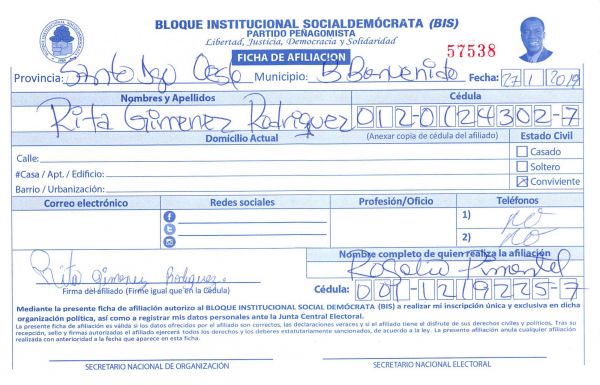 BLOQUE INSTITUCIONAL SOCIALDEMÓCRATA (BIS)
PARTIDO PEÑAGOMISTA
Libertad, Justicia, Democracia y Solidaridad
FICHA DE AFILIACIÓN
57538
Provincia: Santo Dgo Oeste Municipio: B Bienvenido Fecha: 27/1/2019
Nombres y Apellidos Cédula
Rita Gimenez Rodriguez 012-0124302-7
Domicilio Actual (Anexar copia de cédula del afiliado) Estado Civil
Calle: Casado
#Casa / Apt. / Edificio: Soltero
Barrio / Urbanización: Conviviente
Correo electrónico Redes sociales Profesión/Oficio Teléfonos
1) no
2) no
Nombre completo de quien realiza la afiliación
Rita Gimenez Rodriguez Rogelio Pimentel
Firma del afiliado (Firme igual que en la Cédula) Cédula: 001-1219225-7
Mediante la presente ficha de afiliación autorizo al BLOQUE INSTITUCIONAL SOCIAL DEMÓCRATA (BIS) a realizar mi inscripción única y exclusiva en dicha
organización política, así como a registrar mis datos personales ante la Junta Central Electoral.
La presente ficha de afiliación es válida si los datos ofrecidos por el afiliado son correctos, las declaraciones veraces y si el afiliado tiene el disfrute de sus derechos civiles y políticos. Tras su
recepción, sello y firmas autorizadas el afiliado ejercerá todos los derechos y los deberes estatutariamente sancionados, de acuerdo a la ley. La presente afiliación anula cualquier afiliación
realizada con anterioridad a la fecha que aparece en esta ficha.
SECRETARIO NACIONAL DE ORGANIZACIÓN SECRETARIO NACIONAL ELECTORAL